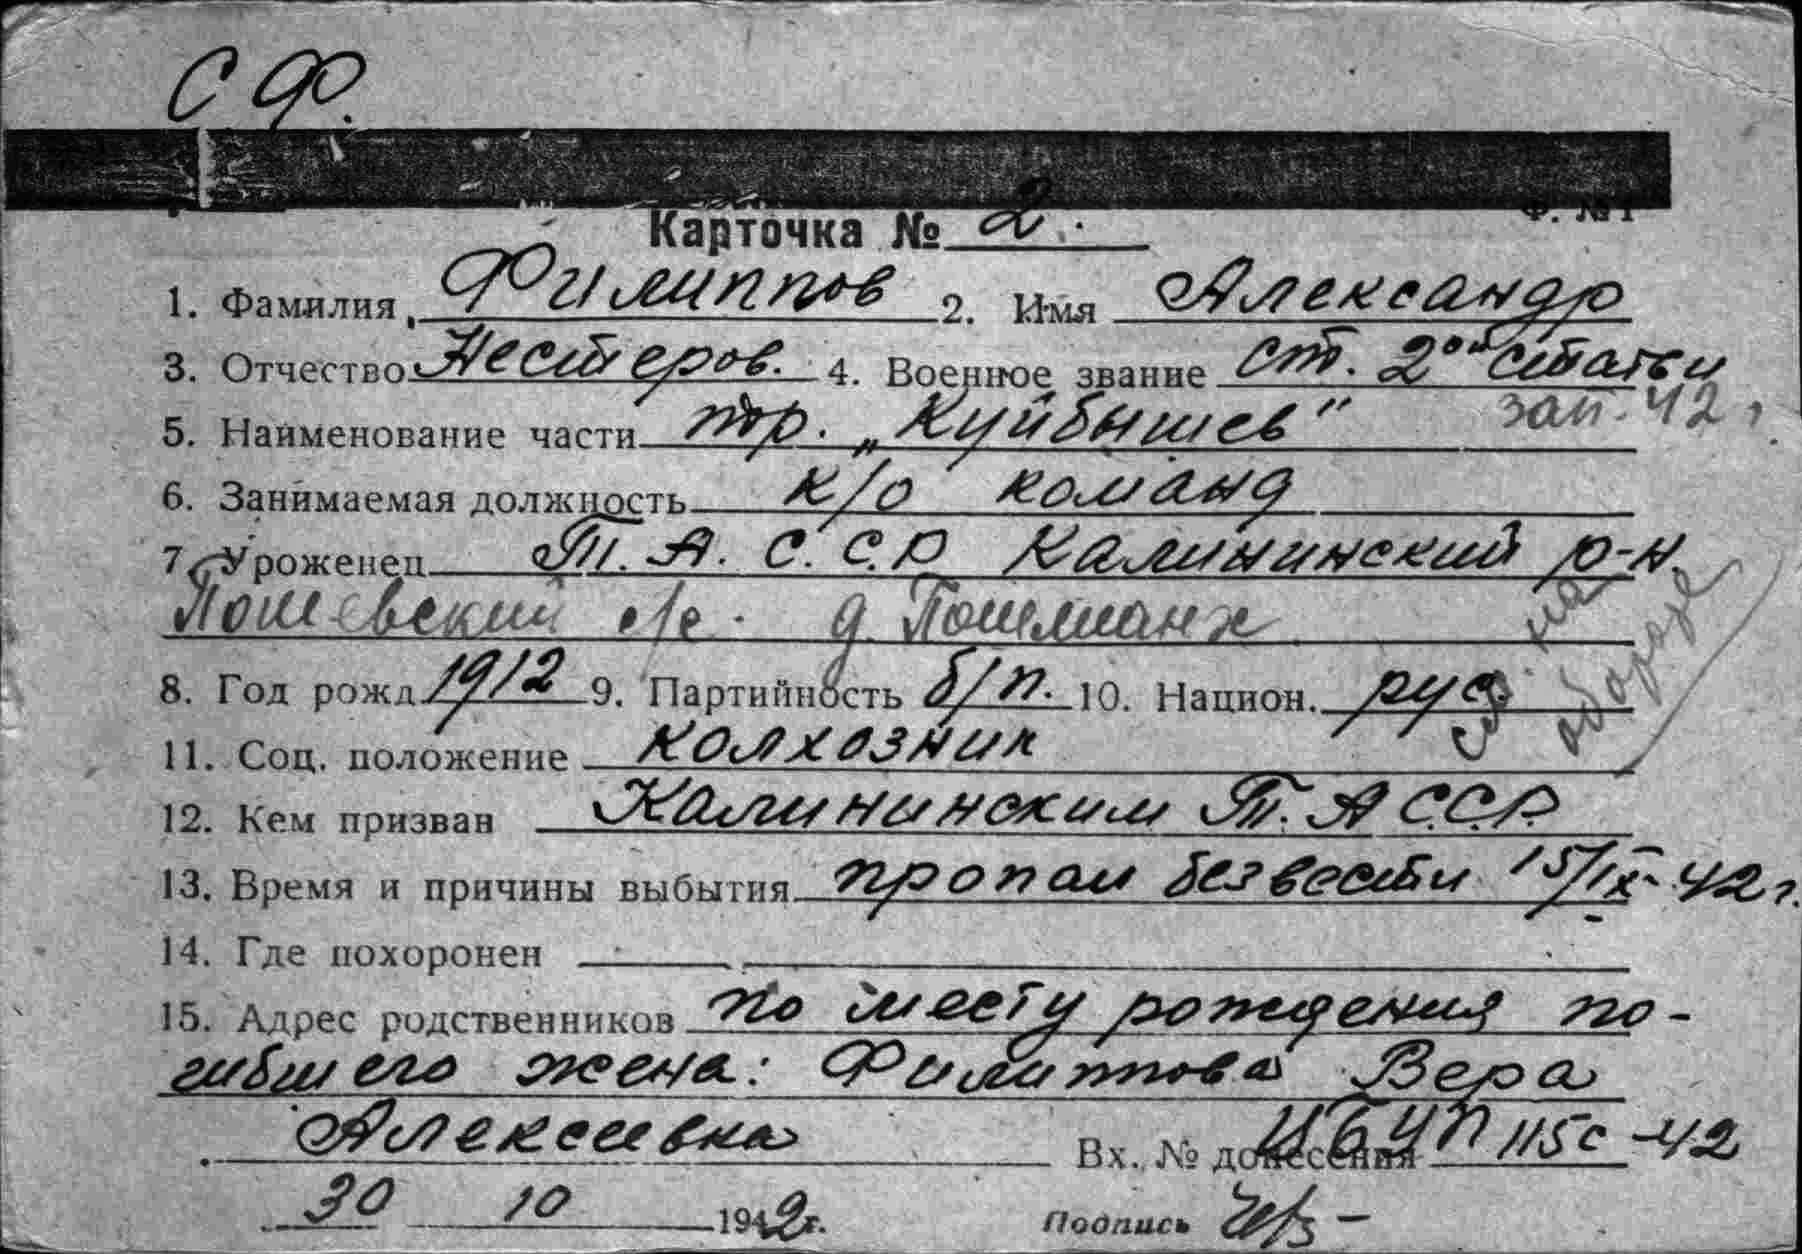 С Ф.
Ф. № 1
Карточка № 2.
1. Фамилия Филиппов 2. Имя Александр
3. Отчество Нестеров. 4. Военное звание ст. 2ой статьи
5. Наименование части тр. „Куйбышев" зап. 42 г.
6. Занимаемая должность к/о команд
7. Уроженец Т. А. С. С. Р Калининский р-н.
Пошевский с/с. д. Пошлианж
8. Год рожд 1912 9. Партийность б/п. 10. Национ. рус.
см. на
обороте
11. Соц. положение колхозник
12. Кем призван Калининским Т. А С.С.Р.
13. Время и причины выбытия пропал без вести 15/IX-42 г.
14. Где похоронен
15. Адрес родственников по месту рождения по-
гибшего жена: Филиппова Вера
Алексеевна Вх. № донесения ЦБУП 115с-42
30 10 1942 г. Подпись